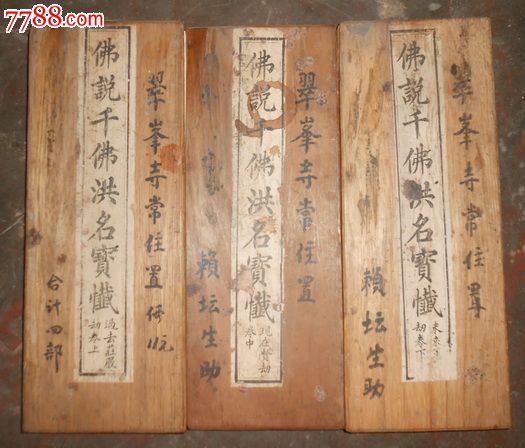 7788.com
佛說千佛洪名寶懺
過去莊嚴
劫卷上
翠峯寺常住置
合計四部
佛說千佛洪名寶懺
現在賢劫
卷中
翠峯寺常住置
賴坛生助
佛說千佛洪名寶懺
劫卷下
翠峯寺常住置
賴坛生助